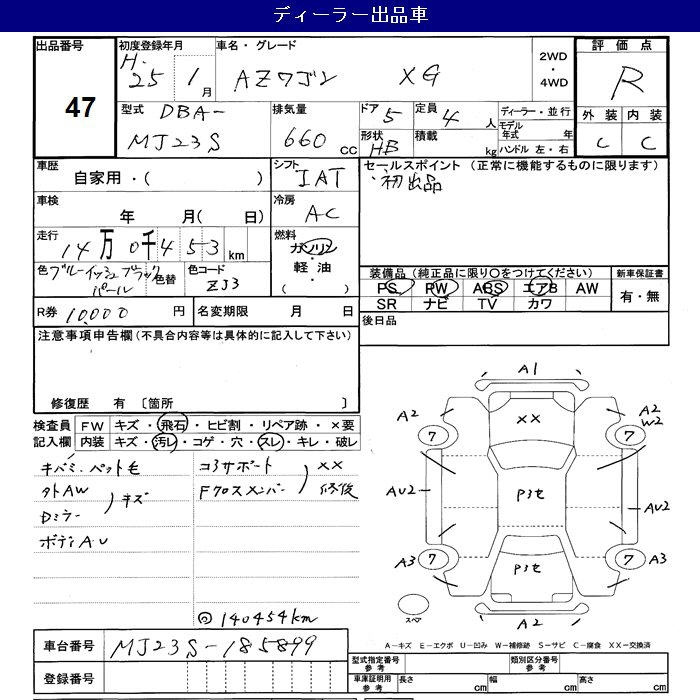 ディーラー出品車
出品番号
47
初度登録年月
H. 25 1月
車名・グレード
AZワゴン XG
2WD・4WD
評価点
R
外装 内装
C C
型式 DBA-
MJ23S
排気量
660cc
ドア 5
形状 HB
定員 4人
積載 kg
ディーラー・並行
モデル年式 年
ハンドル 左・右
車歴
自家用・( )
シフト
IAT
セールスポイント (正常に機能するものに限ります)
・初出品
車検
年 月( 日)
冷房
AC
走行
14万0千453km
燃料
ガソリン
軽油
・( )
色 ブルーイッシュブラックパール
色替
色コード
ZJ3
装備品(純正品に限り○をつけてください)
PS PW ABS エアB AW
SR ナビ TV カワ
新車保証書
有・無
R券 10,000円
名変期限 月 日
後日品
注意事項申告欄(不具合内容等は具体的に記入して下さい)
修復歴 有 〔箇所 〕
検査員記入欄
FW キズ・飛石・ヒビ割・リペア跡・×要
内装 キズ・汚レ・コゲ・穴・スレ・キレ・破レ
キバミ、ペット毛
タトAW
Dミラー
)キズ
ボディAU
コアサポート
Fクロスメンバー
)××
修後
◎140454km
A1
A2
A2
W2
××
7
7
AU2
P3セ
AU2
A3
7
7
A3
P3セ
スペア
A2
A-キズ E-エクボ U-凹み W-補修跡 S-サビ C-腐食 XX-交換済
車台番号 MJ23S-185899
登録番号
型式指定番号
参考
類別区分番号
参考
車庫証明用
参考
長さ cm 幅 cm 高さ cm